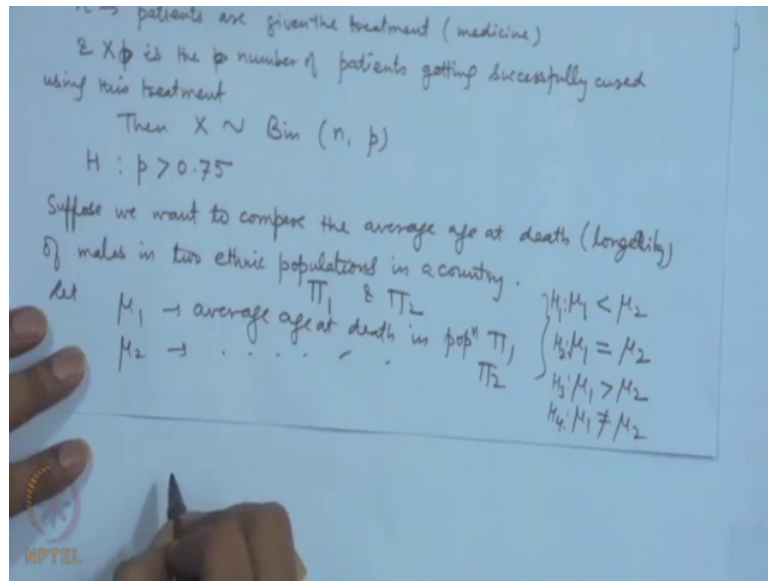 n → patients are given the treatment (medicine)
& X is the number of patients getting successfully cured
using this treatment
Then X ~ Bin (n, p)
H : p > 0.75
Suppose we want to compare the average age at death (longevity)
of males in two ethnic populations in a country.
Π1 & Π2
Let μ1 → average age at death in popⁿ Π1
μ2 → . . . . . . Π2
H1: μ1 < μ2
H2: μ1 = μ2
H3: μ1 > μ2
H4: μ1 ≠ μ2
NPTEL